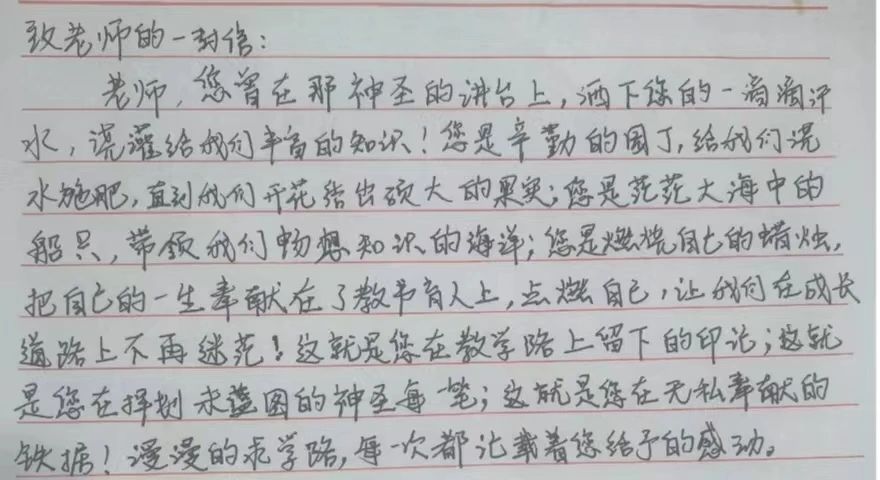 致老师的一封信:
老师,您曾在那神圣的讲台上,洒下您的一滴滴汗
水,浇灌给我们丰富的知识!您是辛勤的园丁,给我们浇
水施肥,直到我们开花结出硕大的果实;您是茫茫大海中的
船只,带领我们畅想知识的海洋;您是燃烧自己的蜡烛,
把自己的一生奉献在了教书育人上,点燃自己,让我们在成长
道路上不再迷茫!这就是您在教学路上留下的印记;这就
是您在挥划未蓝图的神圣每一笔;这就是您在无私奉献的
铁据!漫漫的求学路,每一次都记载着您给予的感动。